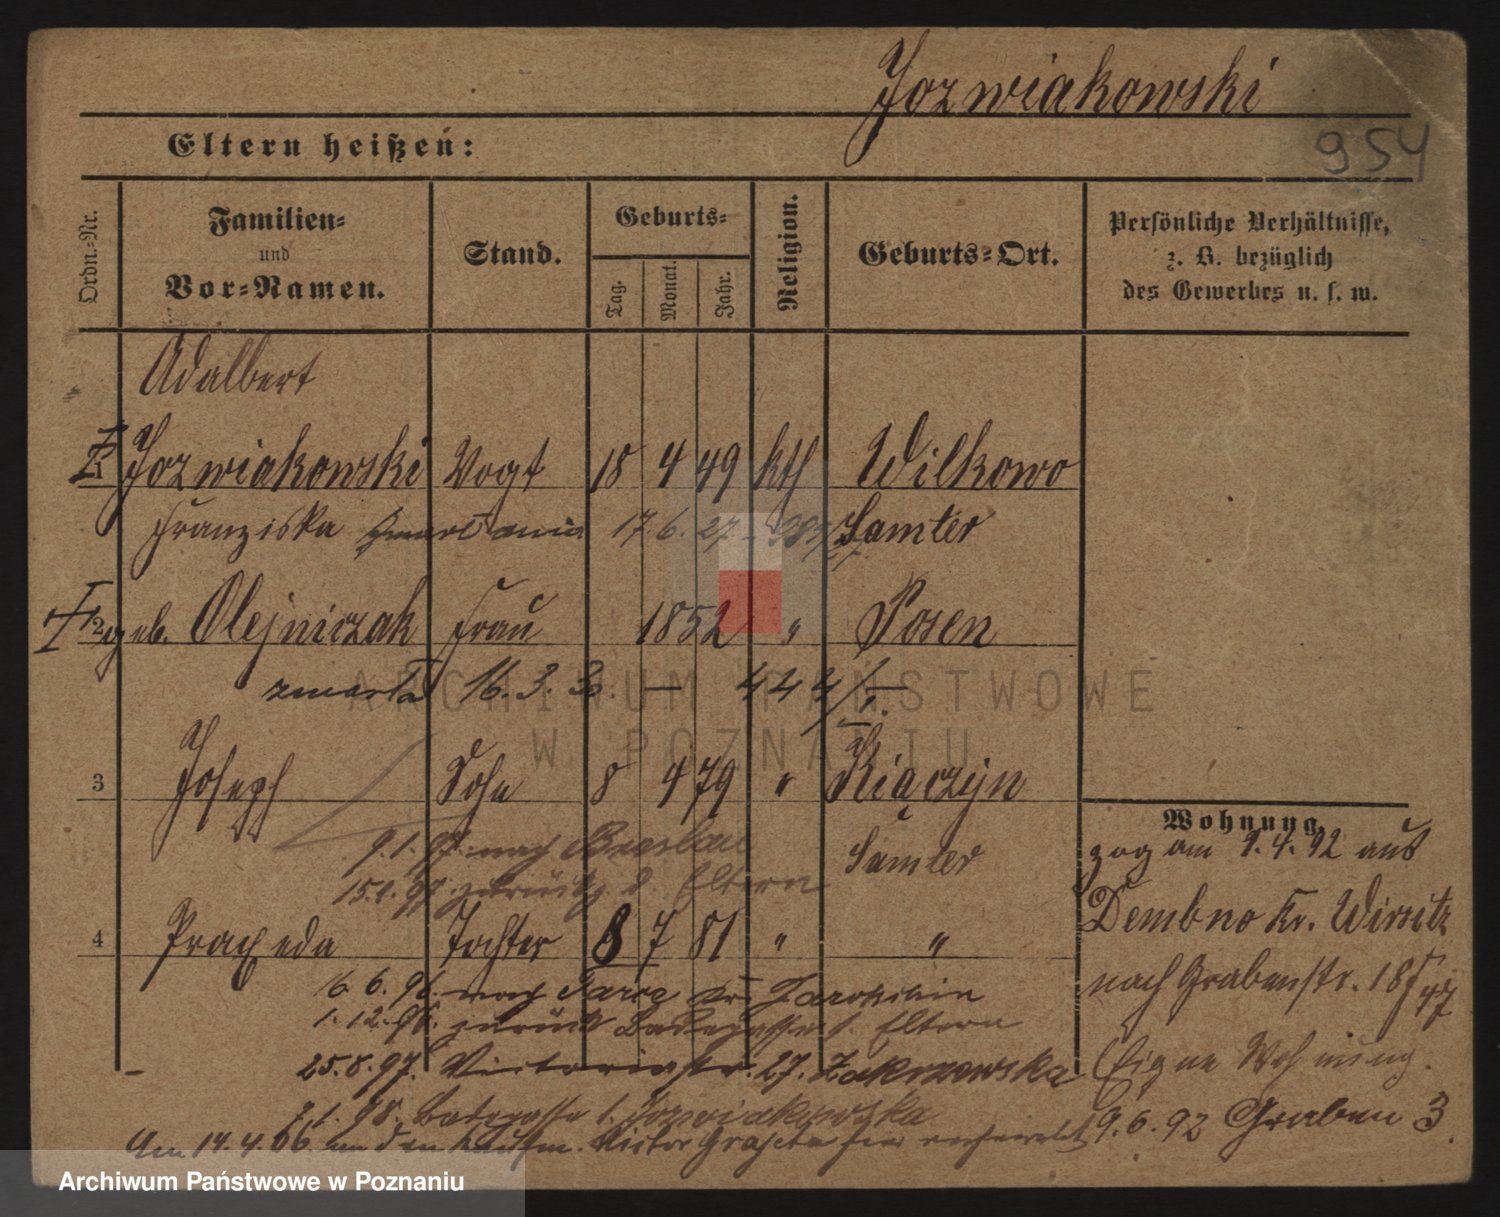 Jozwiakowski
954
Eltern heißen:
Ordn.-Nr.
Familien-
und
Vor-Namen.
Stand.
Geburts-
Tag.
Monat.
Jahr.
Religion.
Geburts-Ort.
Persönliche Verhältnisse,
z. B. bezüglich
des Gewerbes u. s. w.
Adalbert
1 Jozwiakowski Vogt 18 4 49 kth Wilkowo
Franziska 17. 6. 27 Samter
2 geb. Olejniczak Frau 1852 " Posen
zmarła 16. 3. 30. —
ARCHIWUM PAŃSTWOWE
W POZNANIU
3 Joseph Sohn 8 4 79 " Kiączyn
9. 1. 97. nach Breslau Samter
15. 1. 97. zurück z. d. Eltern
4 Praxeda Tochter 8 7 81 " "
6. 6. 96. nach Kr. Jarotschin
1. 12. 96. zurück Badegasse 1. Eltern
25. 8. 97. Victoriastr. 27. Zakrzewska
7. 1. 98. Badegasse 1. Jozwiakowska
Am 14. 4. 06. an den Kaufm. Victor hier verheiratet
Wohnung
zog am 1. 4. 92 aus
Dembno Kr. Wirsitz
nach Grabenstr. 18
Eigne Wohnung.
9. 6. 92 Graben 3.
Archiwum Państwowe w Poznaniu